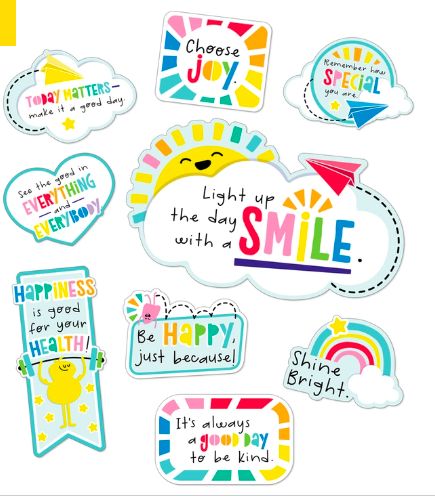 Choose
joy.
TODAY MATTERS—
make it a good day.
Remember how
SPECIAL
you are.
See the good in
EVERYTHING
— and —
EVERYBODY
Light up
the day
with a
SMiLE.
HAPPiNESS
is good
for your
HEALTH!
Be HaPPy,
just because!
Shine
Bright.
It's always
a good day
to be kind.